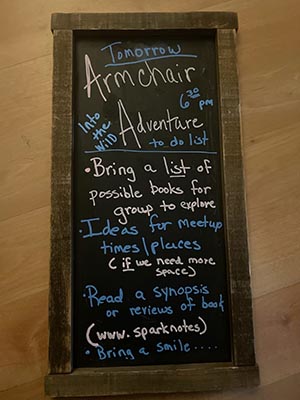 Tomorrow
Armchair
6 30 pm
Into the Wild
Adventure
to do list
• Bring a list of
possible books for
group to explore
• Ideas for meetup
times/places
(if we need more
space)
• Read a synopsis
or reviews of book
(www.sparknotes)
• Bring a smile....